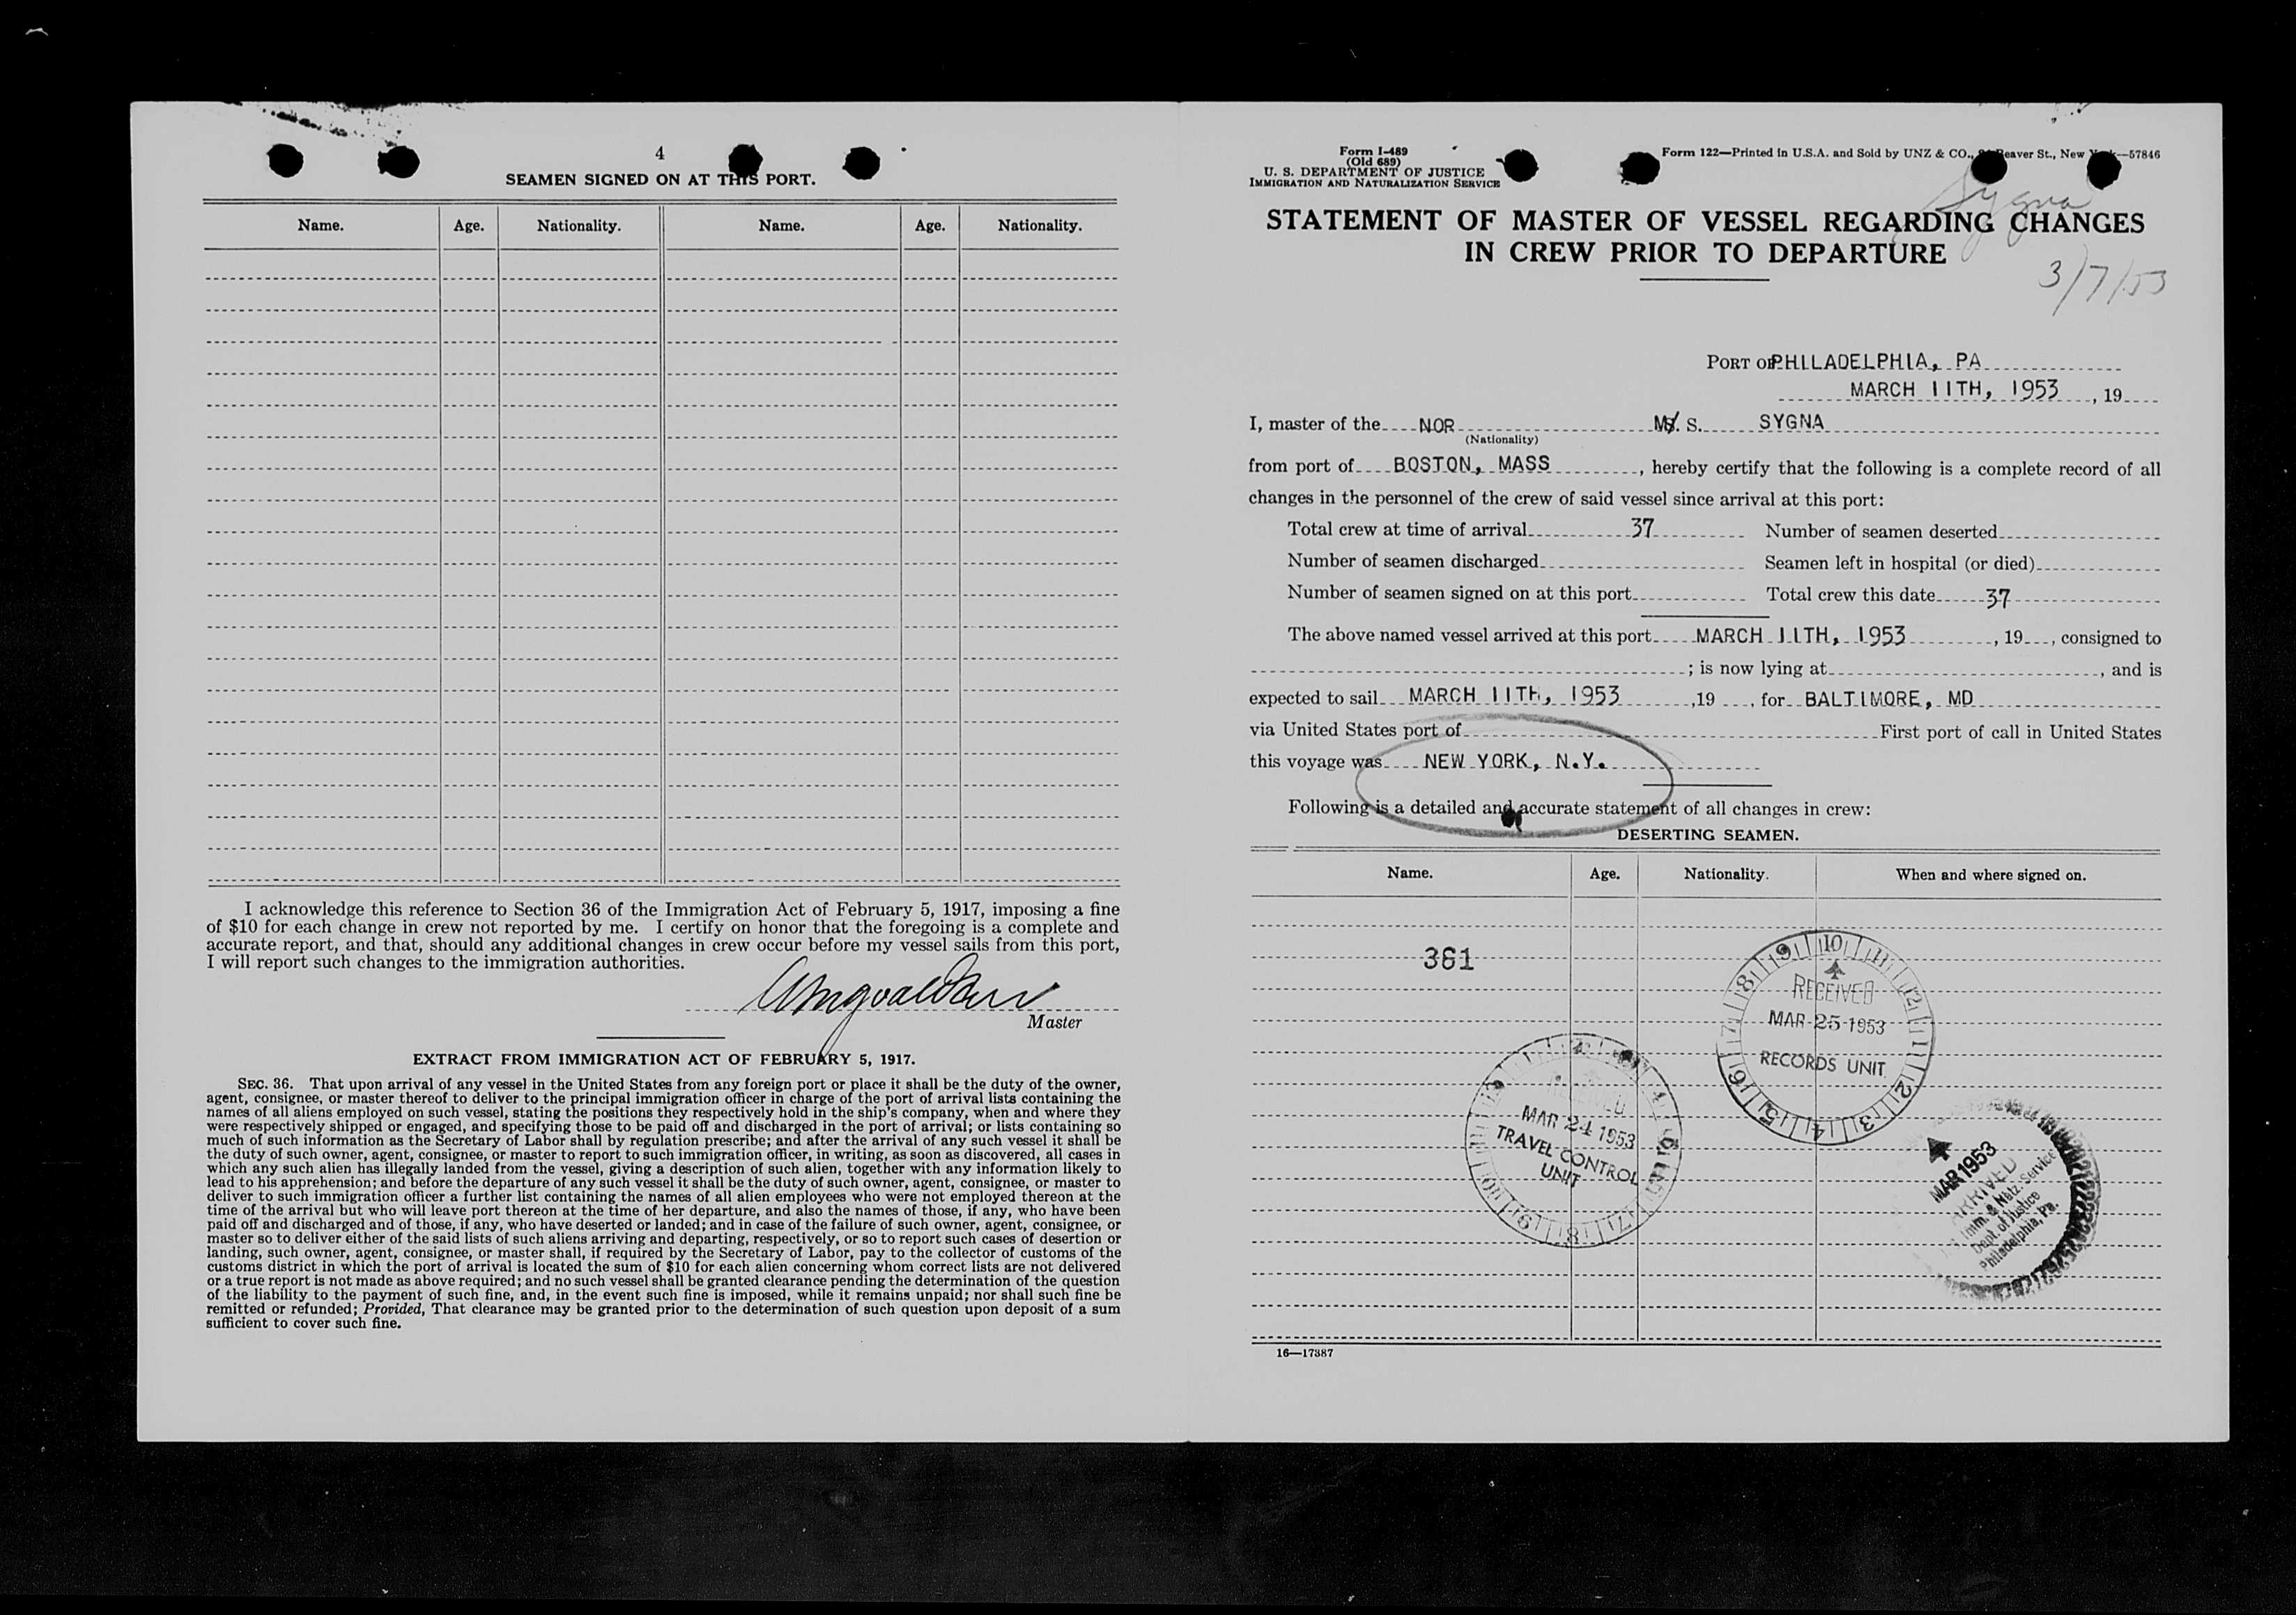 4
SEAMEN SIGNED ON AT THIS PORT.
Name. Age. Nationality. Name. Age. Nationality.
I acknowledge this reference to Section 36 of the Immigration Act of February 5, 1917, imposing a fine
of $10 for each change in crew not reported by me. I certify on honor that the foregoing is a complete and
accurate report, and that, should any additional changes in crew occur before my vessel sails from this port,
I will report such changes to the immigration authorities.
Master
EXTRACT FROM IMMIGRATION ACT OF FEBRUARY 5, 1917.
SEC. 36. That upon arrival of any vessel in the United States from any foreign port or place it shall be the duty of the owner,
agent, consignee, or master thereof to deliver to the principal immigration officer in charge of the port of arrival lists containing the
names of all aliens employed on such vessel, stating the positions they respectively hold in the ship's company, when and where they
were respectively shipped or engaged, and specifying those to be paid off and discharged in the port of arrival; or lists containing so
much of such information as the Secretary of Labor shall by regulation prescribe; and after the arrival of any such vessel it shall be
the duty of such owner, agent, consignee, or master to report to such immigration officer, in writing, as soon as discovered, all cases in
which any such alien has illegally landed from the vessel, giving a description of such alien, together with any information likely to
lead to his apprehension; and before the departure of any such vessel it shall be the duty of such owner, agent, consignee, or master to
deliver to such immigration officer a further list containing the names of all alien employees who were not employed thereon at the
time of the arrival but who will leave port thereon at the time of her departure, and also the names of those, if any, who have been
paid off and discharged and of those, if any, who have deserted or landed; and in case of the failure of such owner, agent, consignee, or
master so to deliver either of the said lists of such aliens arriving and departing, respectively, or so to report such cases of desertion or
landing, such owner, agent, consignee, or master shall, if required by the Secretary of Labor, pay to the collector of customs of the
customs district in which the port of arrival is located the sum of $10 for each alien concerning whom correct lists are not delivered
or a true report is not made as above required; and no such vessel shall be granted clearance pending the determination of the question
of the liability to the payment of such fine, and, in the event such fine is imposed, while it remains unpaid; nor shall such fine be
remitted or refunded; Provided, That clearance may be granted prior to the determination of such question upon deposit of a sum
sufficient to cover such fine.
Form I-489
(Old 689)
U. S. DEPARTMENT OF JUSTICE
IMMIGRATION AND NATURALIZATION SERVICE
Form 122—Printed in U.S.A. and Sold by UNZ & CO., Beaver St., New —57846
Sygna
STATEMENT OF MASTER OF VESSEL REGARDING CHANGES
IN CREW PRIOR TO DEPARTURE
3/7/53
PORT OF PHILADELPHIA, PA
MARCH 11TH, 1953, 19
I, master of the NOR M. S. SYGNA
(Nationality)
from port of BOSTON, MASS, hereby certify that the following is a complete record of all
changes in the personnel of the crew of said vessel since arrival at this port:
Total crew at time of arrival 37 Number of seamen deserted
Number of seamen discharged Seamen left in hospital (or died)
Number of seamen signed on at this port Total crew this date 37
The above named vessel arrived at this port MARCH 11TH, 1953, 19, consigned to
; is now lying at, and is
expected to sail MARCH 11TH, 1953, 19, for BALTIMORE, MD
via United States port of First port of call in United States
this voyage was NEW YORK, N.Y.
Following is a detailed and accurate statement of all changes in crew:
DESERTING SEAMEN.
Name. Age. Nationality. When and where signed on.
361
RECEIVED
MAR 25 1953
RECORDS UNIT
RECEIVED
MAR 24 1953
TRAVEL CONTROL
UNIT
MAR 1953
ARRIVED
Imm. & Natz. Service
Dept. of Justice
Philadelphia, Pa.
16—17387